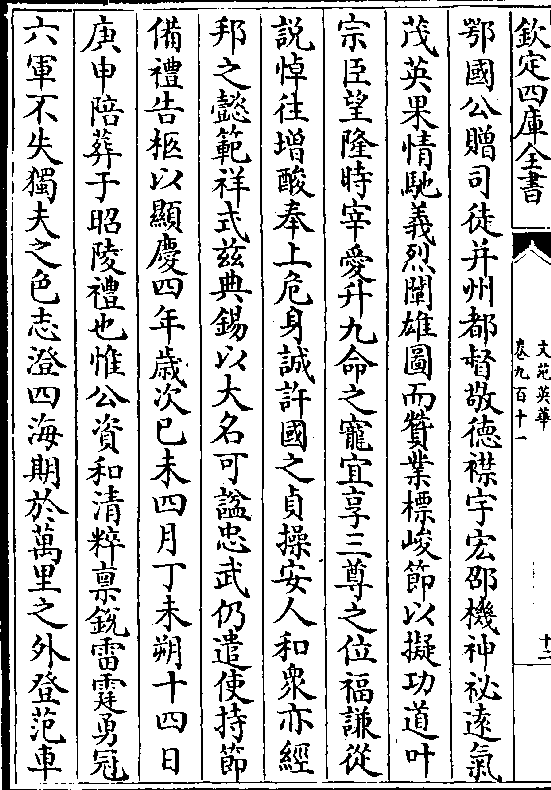 欽定四庫全書
文苑英華
卷九百十一
十二
鄂國公贈司徒并州都督敬徳襟宇宏邵機神祕逺氣
茂英果情馳義烈闡雄圖而贊業標峻節以擬功道叶
宗臣望隆時宰愛升九命之寵宜享三尊之位福謙從
說悼往増酸奉上危身誠許國之貞操安人和衆亦經
邦之懿範祥式兹典錫以大名可諡忠武仍遣使持節
備禮告柩以顯慶四年歳次已未四月丁未朔十四日
庚申陪葬于昭陵禮也惟公資和清粹禀銳雷霆勇冠
六軍不失獨夫之色志澄四海期於萬里之外登范車